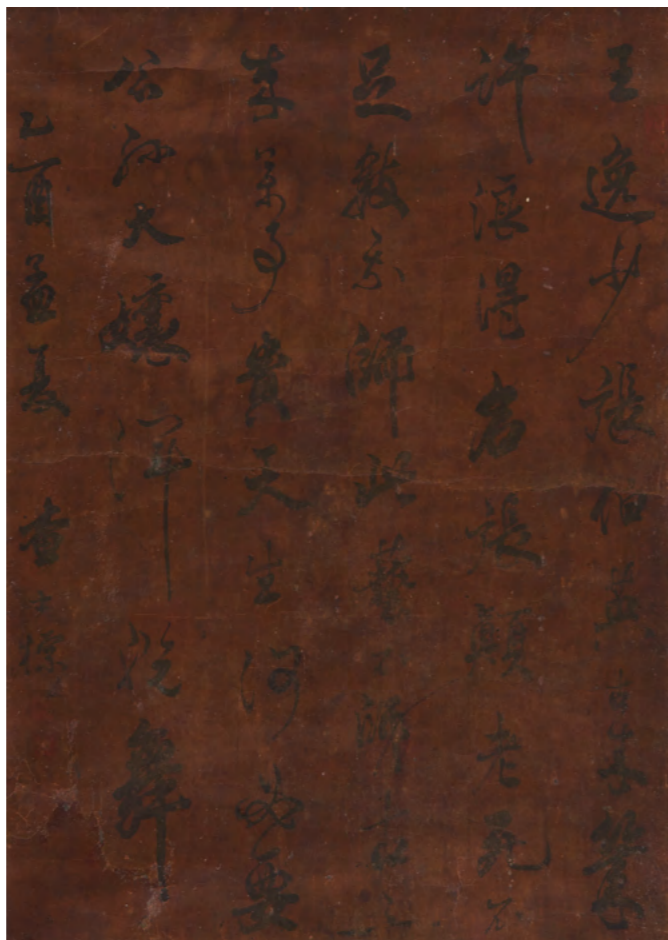 王逸少張伯英古來幾
許浪得名張顛老死不
足數我師此藝不師古
來萬事貴天生何必要
公孫大孃渾脫舞
乙酉孟夏 查士標